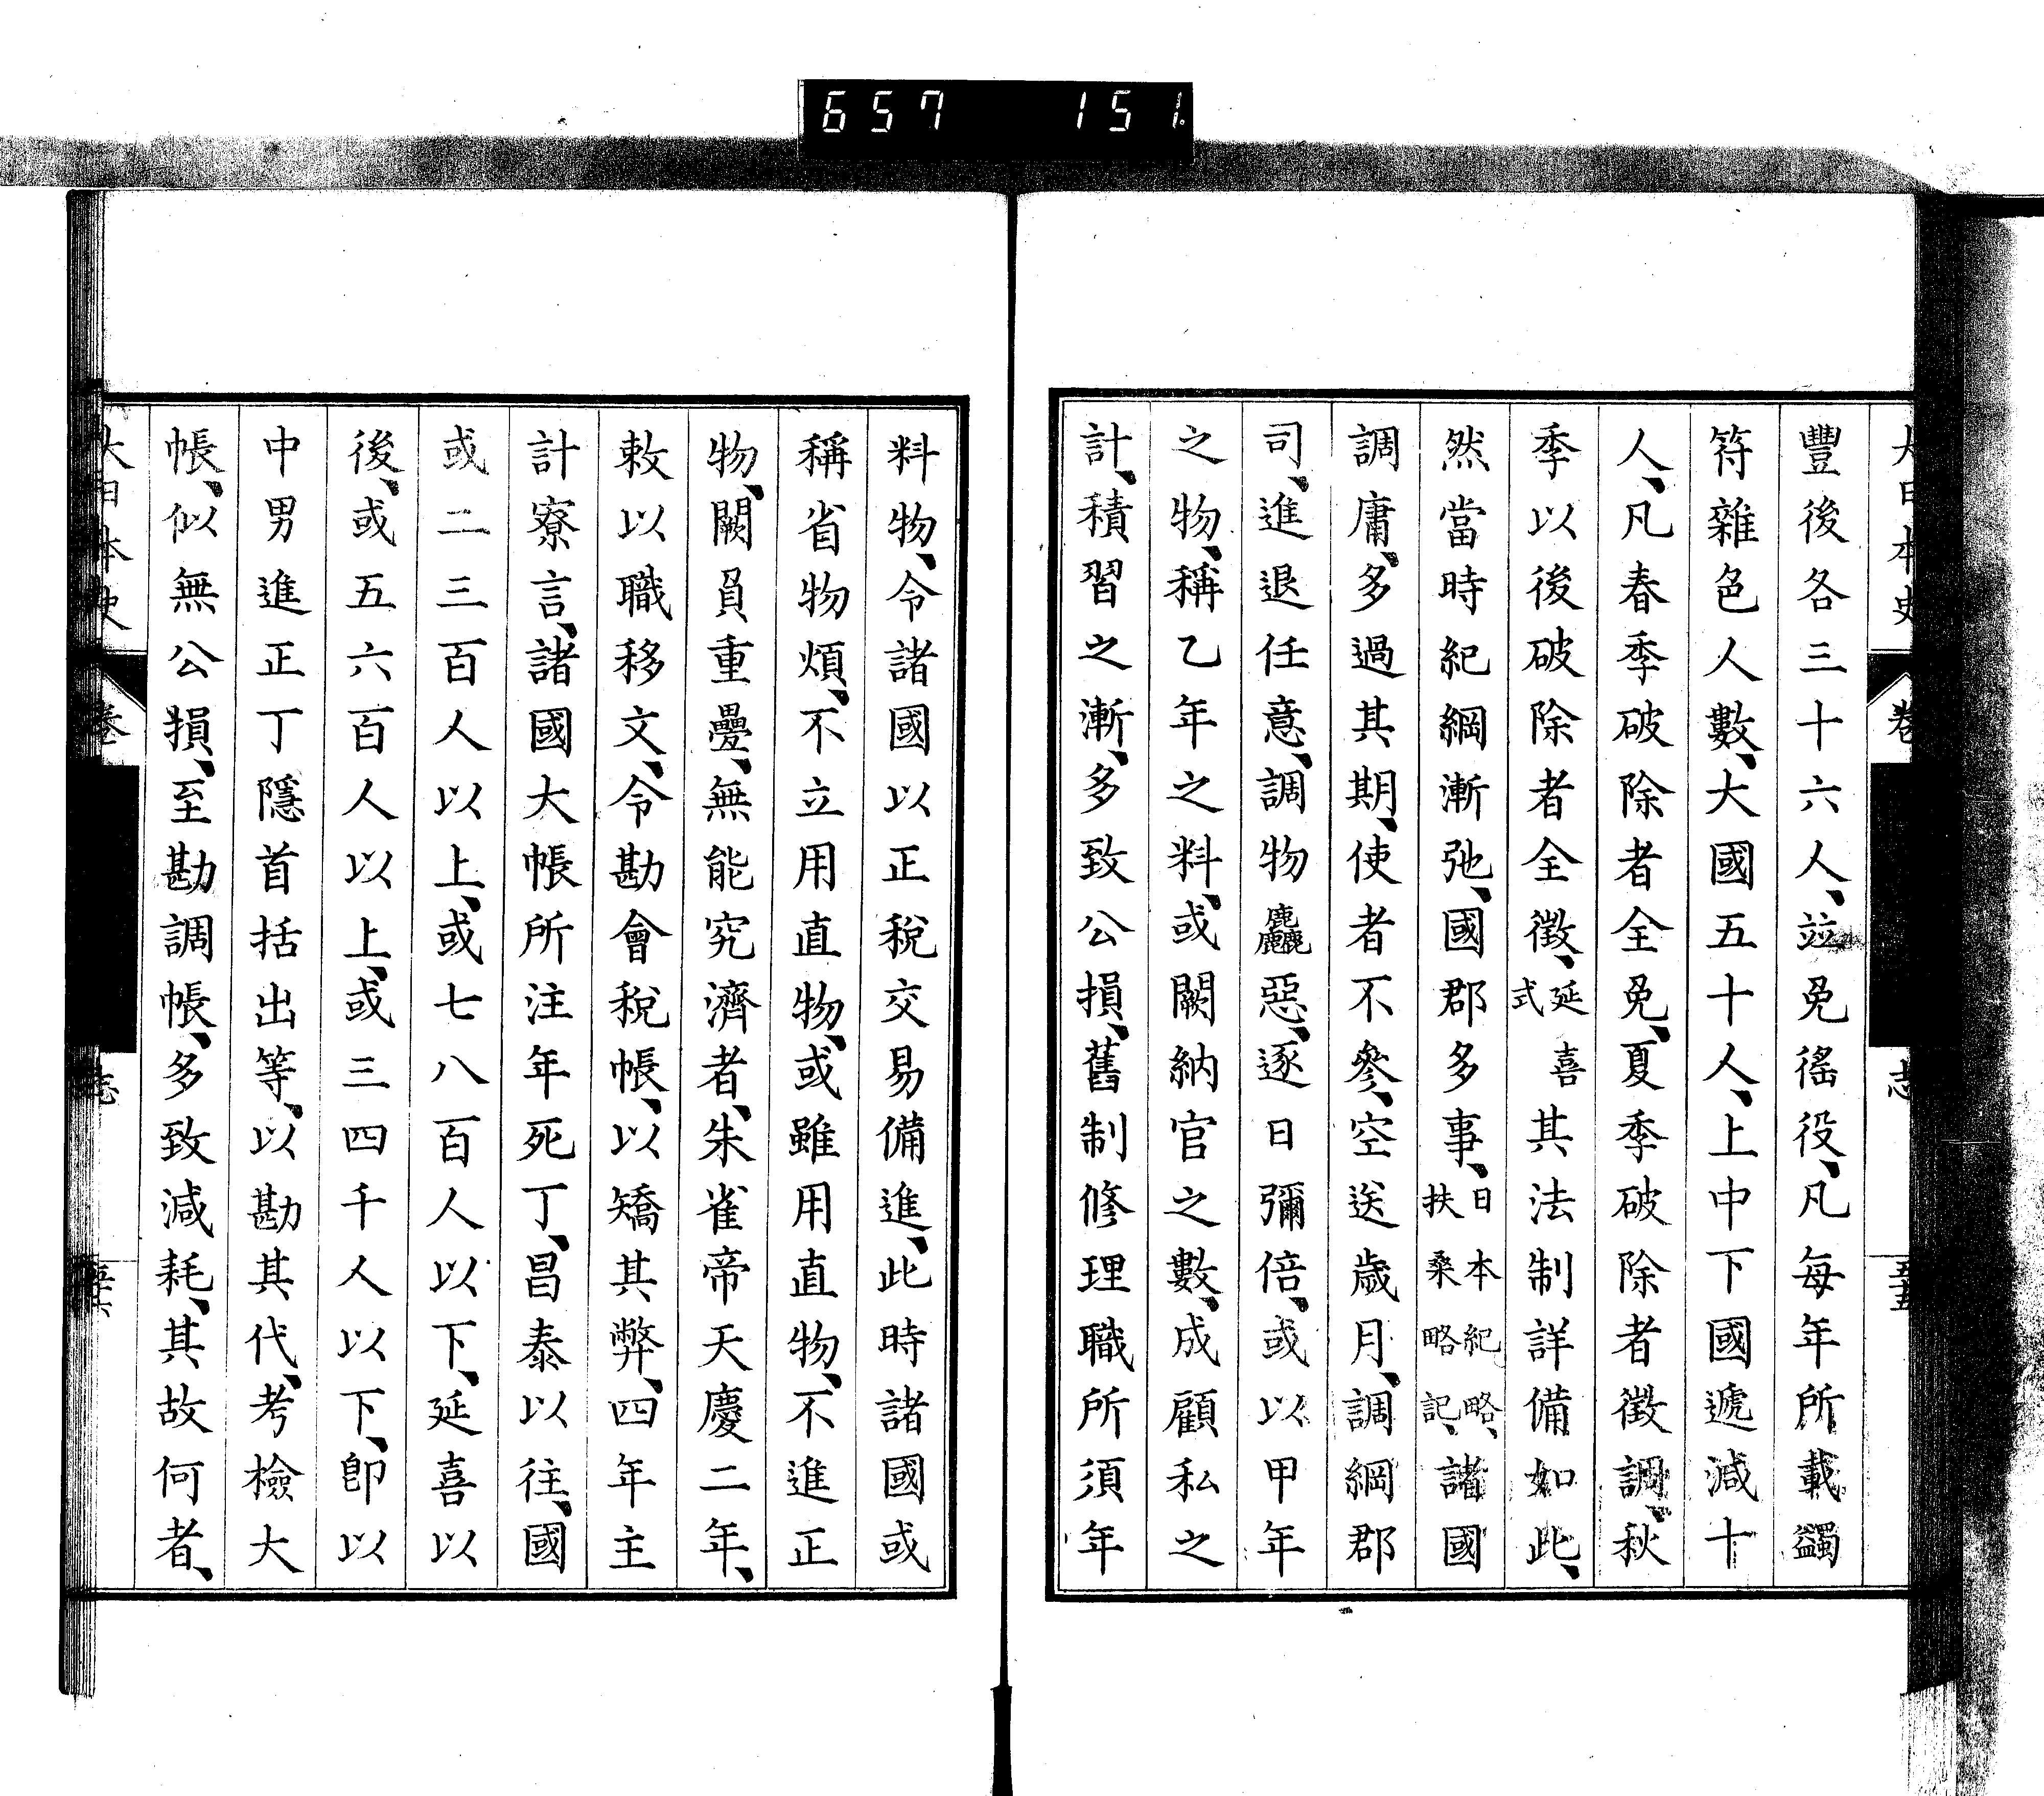 657 151
大日本史 卷 志 五十五
豐後各三十六人、竝免徭役、凡每年所載蠲
符雜色人數、大國五十人、上中下國遞減十
人、凡春季破除者全免、夏季破除者徵調、秋
季以後破除者全徵、延喜式其法制詳備如此、
然當時紀綱漸弛、國郡多事、日本紀略、扶桑略記、諸國
調庸、多過其期、使者不參、空送歲月、調綱郡
司、進退任意、調物麤惡、逐日彌倍、或以甲年
之物、稱乙年之料、或闕納官之數、成顧私之
計、積習之漸、多致公損、舊制修理職所須年
料物、令諸國以正稅交易備進、此時諸國或
稱省物煩、不立用直物、或雖用直物、不進正
物、闕負重疊、無能究濟者、朱雀帝天慶二年、
敕以職移文、令勘會稅帳、以矯其弊、四年主
計寮言、諸國大帳所注年死丁、昌泰以往、國
或二三百人以上、或七八百人以下、延喜以
後、或五六百人以上、或三四千人以下、卽以
中男進正丁隱首括出等、以勘其代、考檢大
帳、似無公損、至勘調帳、多致減耗、其故何者、
大日本史 卷 志 五十六